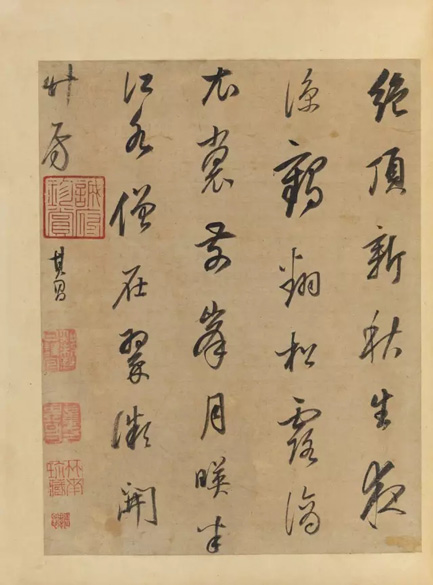 絕頂新秋生夜
涼鶴翻松露滴
衣裳前峰月暎半
江水僧在翠微開
竹房
其昌